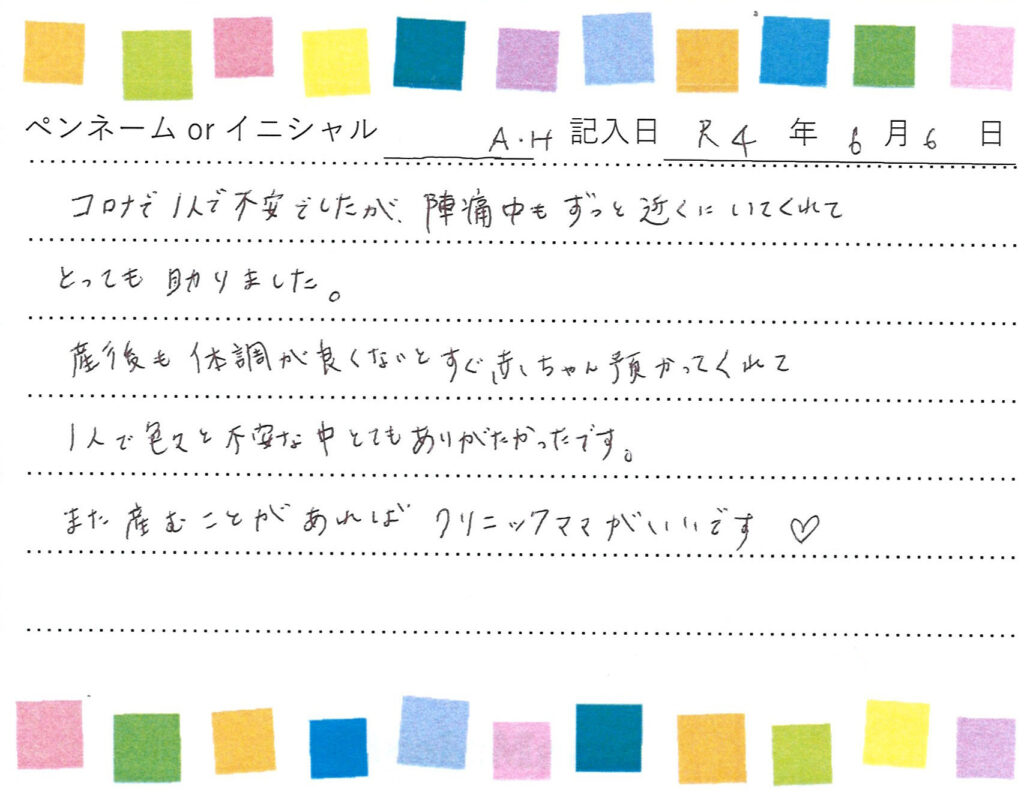 ペンネーム or イニシャル A・H 記入日 R4 年 6 月 6 日
コロナで1人で不安でしたが、陣痛中もずっと近くにいてくれて
とっても助りました。
産後も体調が良くないとすぐ赤ちゃん預かってくれて
1人で色々と不安な中とてもありがたかったです。
また産むことがあれば クリニックママがいいです♡